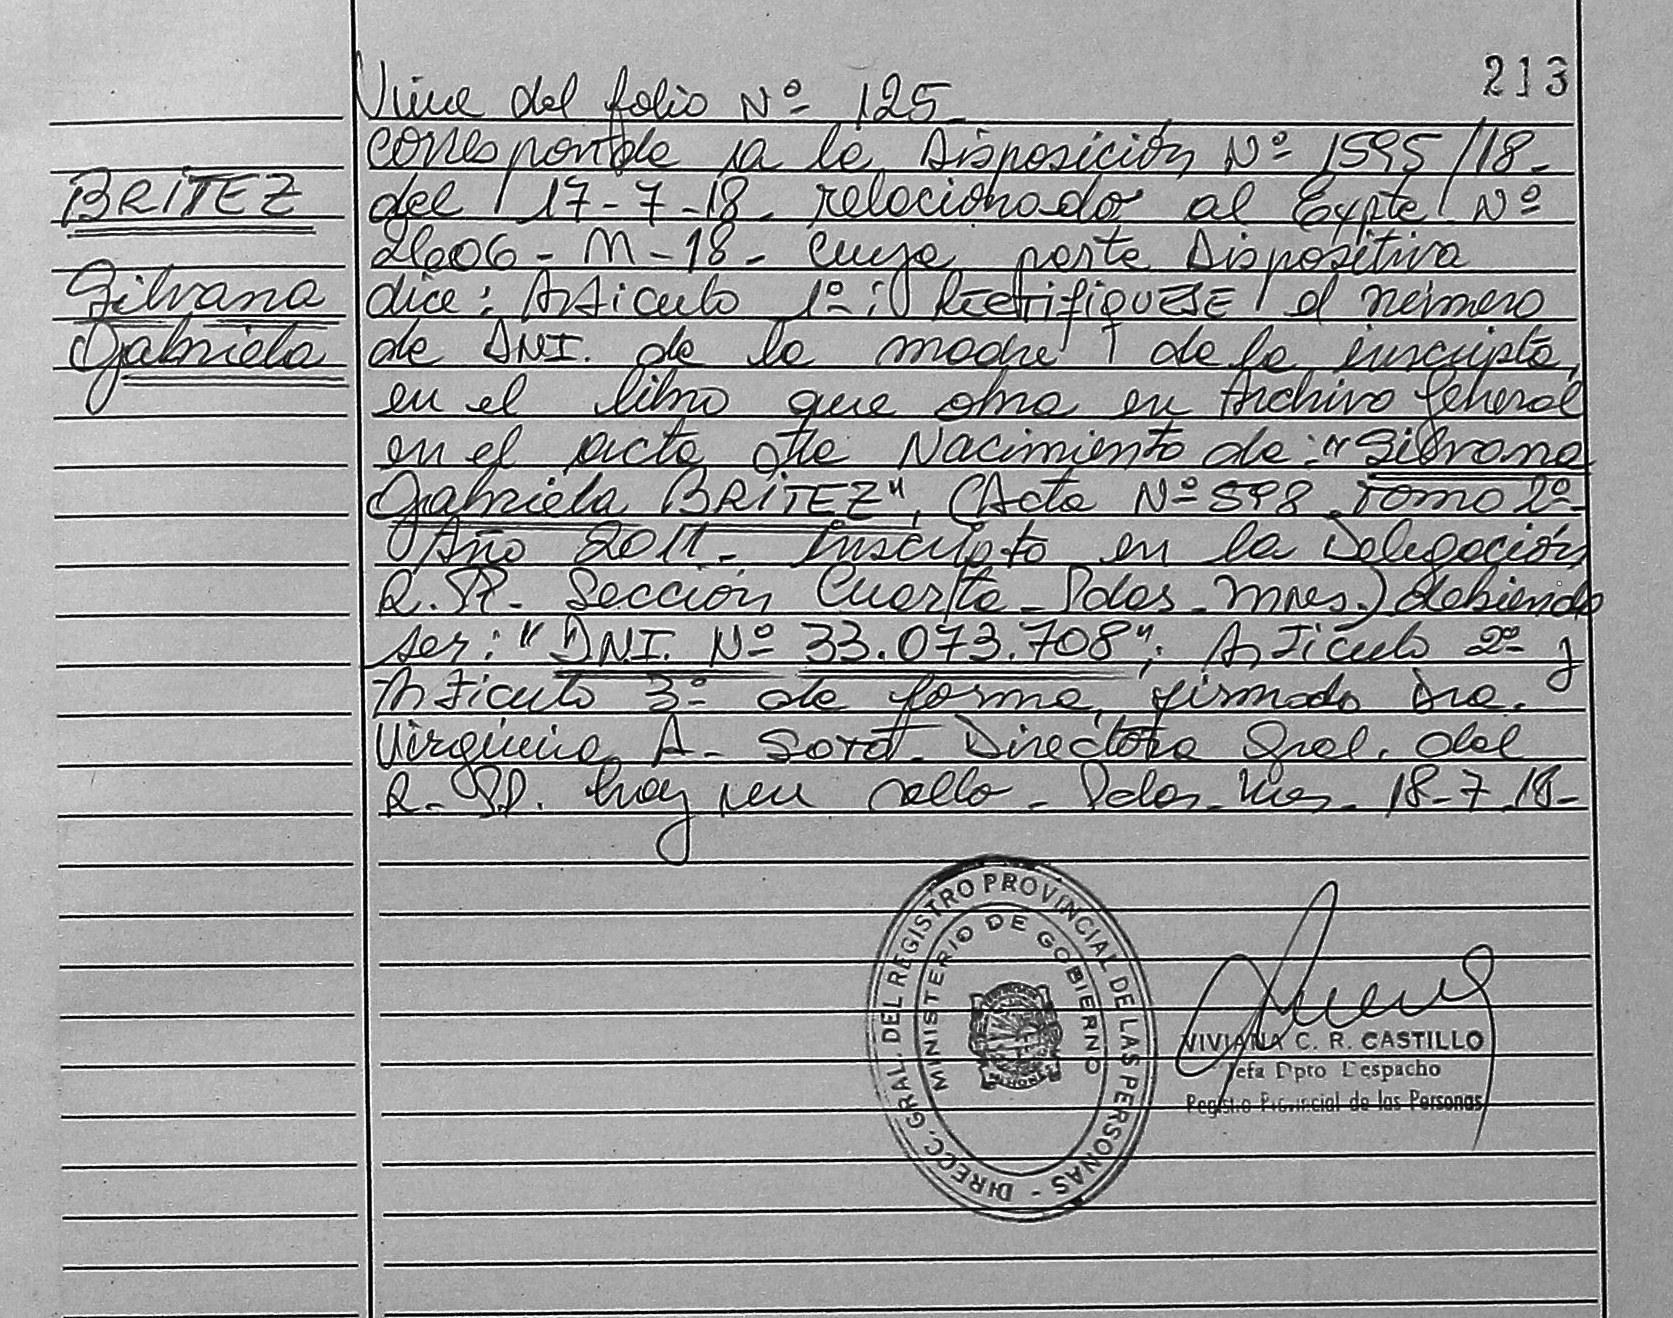 213
Viene del folio Nº 125_
corresponde a la Disposición Nº 1595/18_
BRITEZ
del 17-7-18_ relacionado al Expte Nº
2606-M-18- cuya parte Dispositiva
Silvana
dice: Articulo 1º: RectifiQUESE el número
Gabriela
de DNI. de la madre de la inscripta,
en el libro que obra en Archivo General
en el acta de Nacimiento de: "Silvana
Gabriela BRITEZ", (Acta Nº 598 Tomo 2º-
Año 2011_ Inscripto en la Delegación
R.PP. Sección Cuarta_Pdas_Mnes.) debiendo
ser: "DNI. Nº 33.073.708"; Articulo 2º y
Articulo 3º de forma, firmado Dra.
Virginia A. Soto_ Directora Gral. del
R.PP. hay un sello_ Pdas_Mes_ 18-7-18-
DIRECC. GRAL. DEL REGISTRO PROVINCIAL DE LAS PERSONAS -
MINISTERIO DE GOBIERNO
VIVIANA C. R. CASTILLO
Jefa Dpto Despacho
Registro Provincial de las Personas